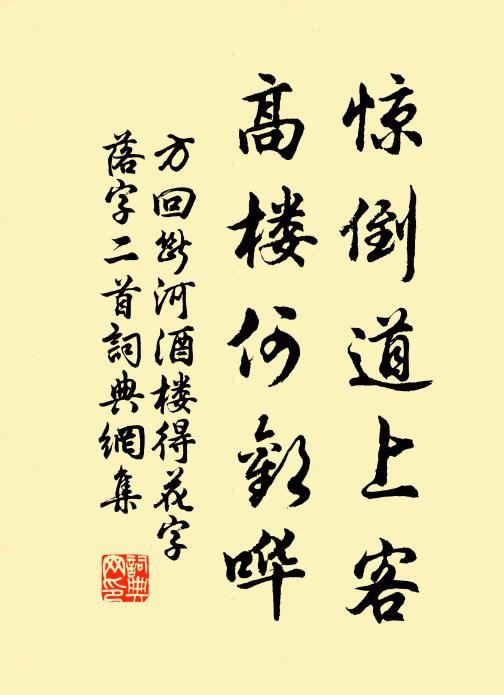 惊倒道上客
高楼何歡哗
方回断河酒楼得花字
落字二首詞典網集
詞典网印